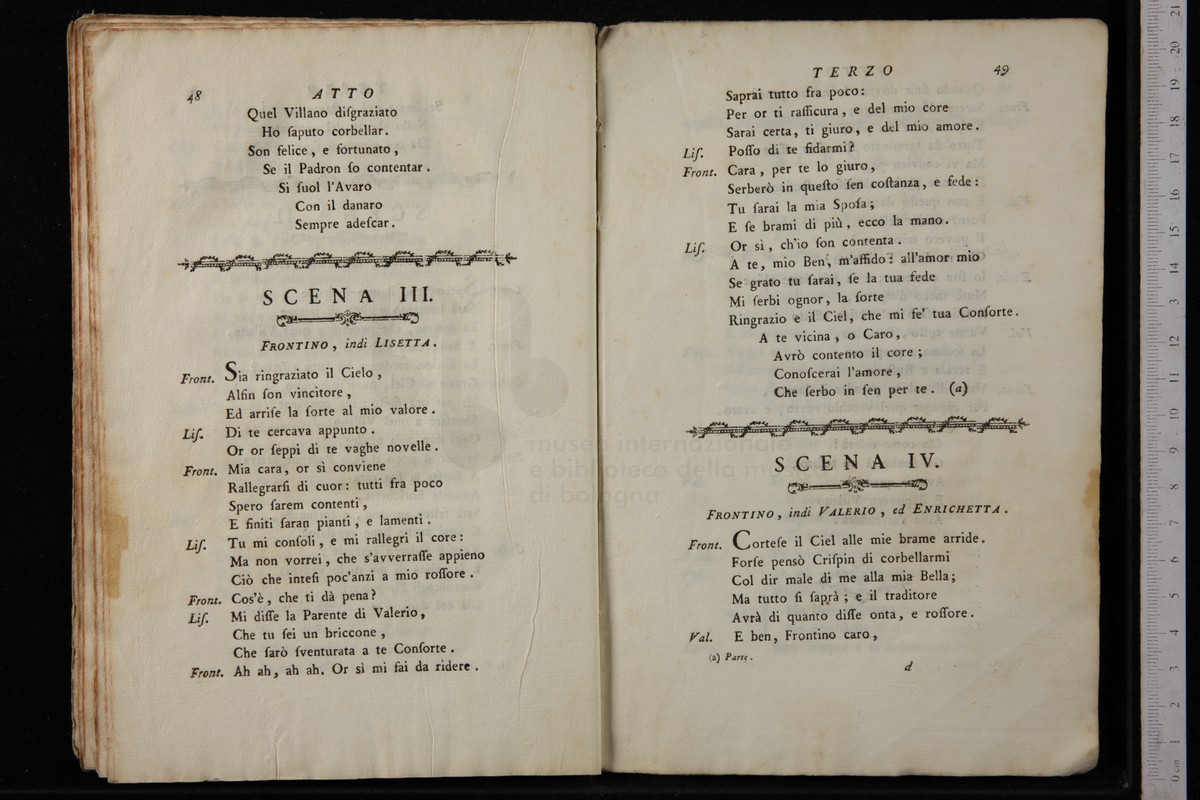 48
ATTO
Quel Villano diſgraziato
Ho ſaputo corbellar.
Son felice, e fortunato,
Se il Padron ſo contentar.
Si ſuol l'Avaro
Con il danaro
Sempre adeſcar.
SCENA III.
FRONTINO, indi LISETTA.
Front. Sia ringraziato il Cielo,
Alfin ſon vincitore,
Ed arriſe la ſorte al mio valore.
Liſ. Di te cercava appunto.
Or or ſeppi di te vaghe novelle.
Front. Mia cara, or sì conviene
Rallegrarſi di cuor: tutti fra poco
Spero farem contenti,
E finiti ſaran pianti, e lamenti.
Liſ. Tu mi conſoli, e mi rallegri il core:
Ma non vorrei, che s'avverraſſe appieno
Ciò che inteſi poc'anzi a mio roſſore.
Front. Cos'è, che ti dà pena?
Liſ. Mi diſſe la Parente di Valerio,
Che tu ſei un briccone,
Che ſarò ſventurata a te Conſorte.
Front. Ah ah, ah ah. Or sì mi fai da ridere.
TERZO
49
Saprai tutto fra poco:
Per or ti raſſicura, e del mio core
Sarai certa, ti giuro, e del mio amore.
Liſ. Poſſo di te fidarmi?
Front. Cara, per te lo giuro,
Serberò in queſto ſen coſtanza, e fede:
Tu ſarai la mia Spoſa;
E ſe brami di più, ecco la mano.
Liſ. Or sì, ch'io ſon contenta.
A te, mio Ben, m'affido: all'amor mio
Se grato tu ſarai, ſe la tua fede
Mi ſerbi ognor, la ſorte
Ringrazio e il Ciel, che mi fe' tua Conſorte.
A te vicina, o Caro,
Avrò contento il core;
Conoſcerai l'amore,
Che ſerbo in ſen per te. (a)
SCENA IV.
FRONTINO, indi VALERIO, ed ENRICHETTA.
Front. Corteſe il Ciel alle mie brame arride.
Forſe pensò Criſpin di corbellarmi
Col dir male di me alla mia Bella;
Ma tutto ſi ſaprà; e il traditore
Avrà di quanto diſſe onta, e roſſore.
Val. E ben, Frontino caro,
(a) Parte.
d
museo internazionale
e biblioteca della musica
di bologna
0 cm 1 2 3 4 5 6 7 8 9 10 11 12 13 14 15 16 17 18 19 20 21